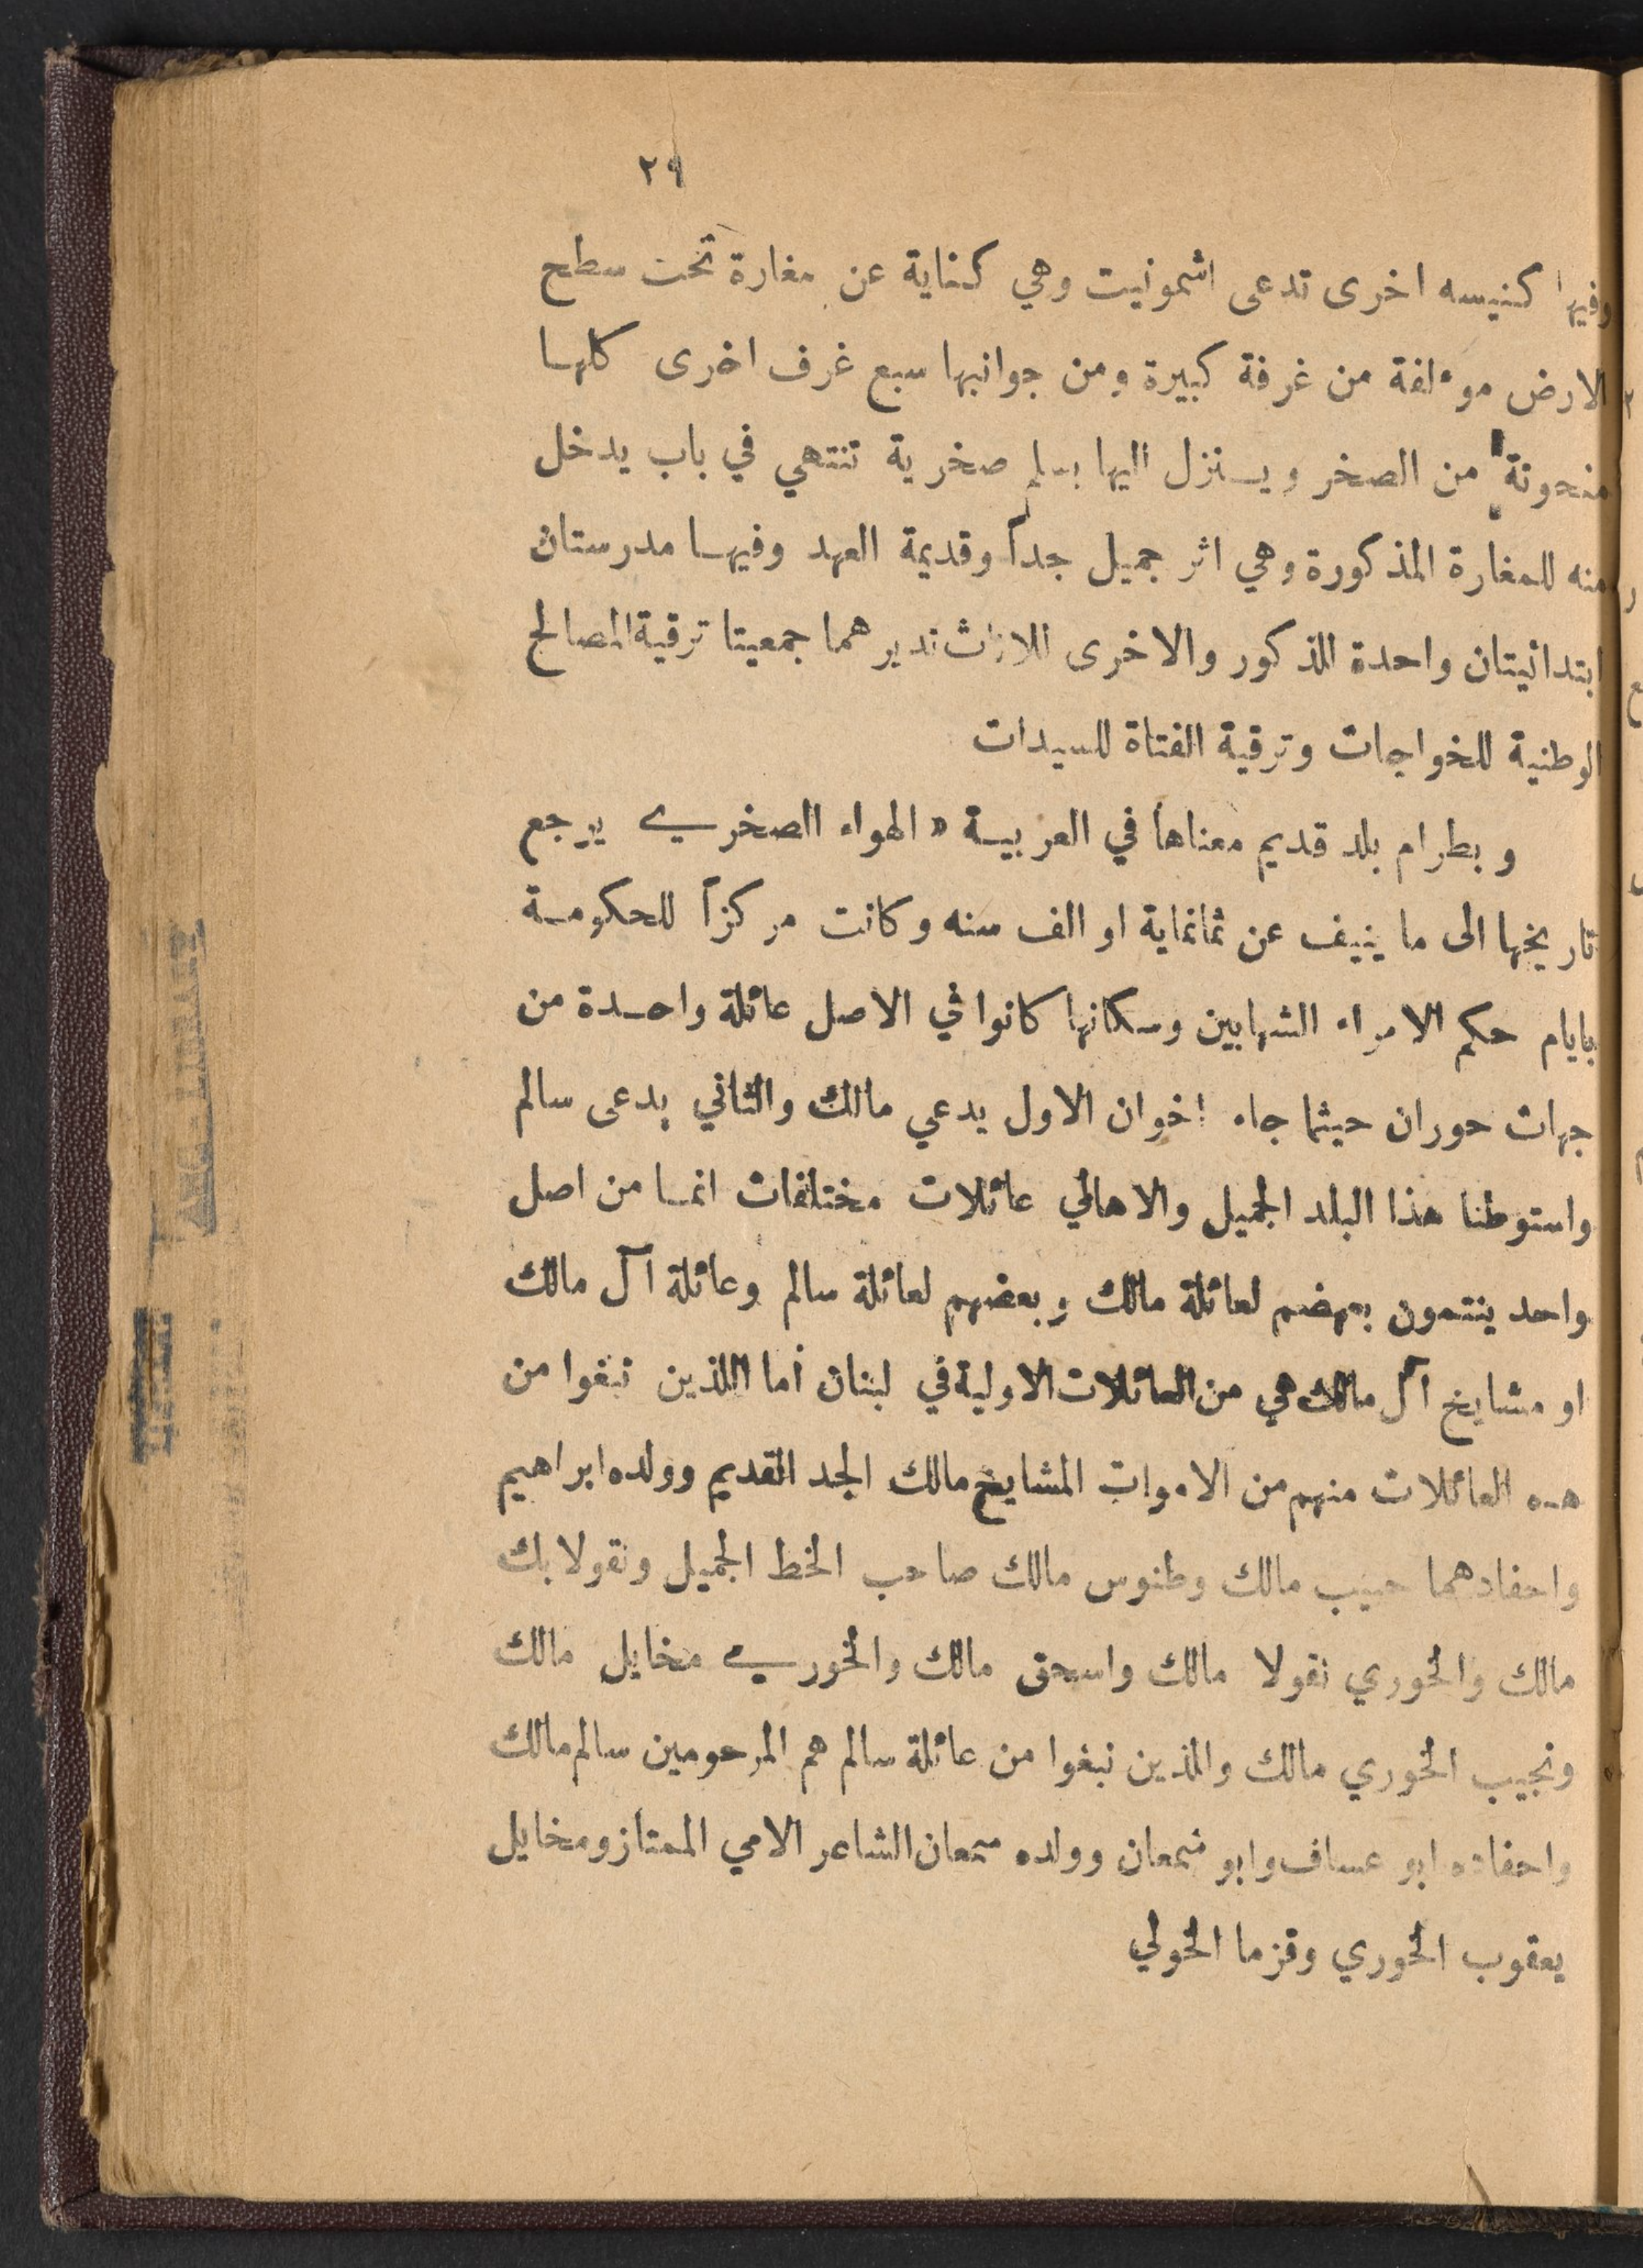 ٢٩
وفيها كنيسه اخرى تدعى اشمونيت وهي كناية عن مغارة تحت سطح
الارض موءلفة من غرفة كبيرة ومن جوانبها سبع غرف اخرى كلها
منحوتة من الصخر وينزل اليها بسلم صخرية تنتهي في باب يدخل
منه للمغارة المذكورة وهي اثر جميل جداً وقديمة العهد وفيها مدرستان
ابتدائيتان واحدة للذكور والاخرى للاناث تديرهما جمعيتا ترقية المصالح
الوطنية للخواجات وترقية الفتاة للسيدات
وبطرام بلد قديم معناها في العربية « الهواء الصخري يرجع
تاريخها الى ما ينيف عن ثمانماية او الف سنه وكانت مركزاً للحكومة
بايام حكم الامراء الشهابين وسكانها كانوا في الاصل عائلة واحدة من
جهات حوران حيثما جاء اخوان الاول يدعي مالك والثاني يدعى سالم
واستوطنا هذا البلد الجميل والاهالي عائلات مختلفات انما من اصل
واحد ينتمون بعهضم لعائلة مالك وبعضهم لعائلة سالم وعائلة آل مالك
او مشايخ آل مالك هي من العائلات الاولية في لبنان أما اللذين نبغوا من
هذه العائلات منهم من الاموات المشايخ مالك الجد القديم وولده ابراهيم
واحفادهما حبيب مالك وطنوس مالك صاحب الخط الجميل ونقولا بك
مالك والخوري نقولا مالك واسحق مالك والخوري مخايل مالك
ونجيب الخوري مالك والذين نبغوا من عائلة سالم هم المرحومين سالم مالك
واحفاده ابو عساف وابو سمعان وولده سمعان الشاعر الامي الممتاز ومخايل
يعقوب الخوري وقزما الخولي